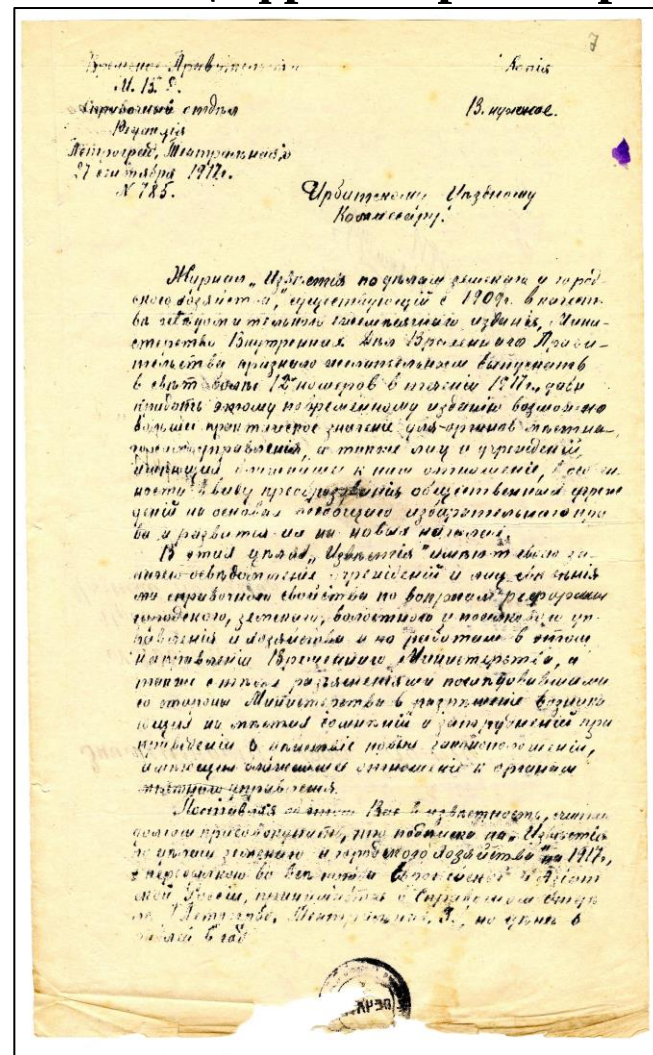 7
Временное Правительство
Копія
М. В. Д.
отдѣл
В. нужное.
Редакція
Петроград, Театральная, 3
27 октября 1917г.
N 785.
Ирбитскому Уѣздному
Коммисару.
Журнал „Извѣстія по дѣлам земскаго и город-
ского хозяйства," существующій с 1909г. в качест-
вѣ ежемѣсячнаго изданія, Мини-
стерство Внутренних Дѣл Временнаго Прави-
тельства признало желательным выпускать
в свѣт 12 номеров в теченіи 1917г., дабы
придать этому повременному изданію возможно
большее практическое значеніе для органов мѣстна-
го управленія, а также лиц и учрежденій,
имѣющих ближайшее к ним отношеніе, в
ности в виду преобразованія общественных учреж
деній на основах всеобщаго избирательнаго пра
ва и развитія их на новых началах.
В этих цѣлях „Извѣстія" имѣют своею за-
дачею учрежденій и лиц свѣдѣнія
ми справочнаго свойства по вопросам реформы
городского, земскаго, волостного и поселковаго уп-
равленія и хозяйства и по работам в этом
направленіи Министерства, а
также разъясненіями послѣдовавшими
со стороны Министерства в разрѣшеніе возника
ющих на мѣстах сомнѣній и затрудненій при
приведеніи в дѣйствіе новых законоположеній,
имѣющих ближайшее отношеніе к органам
мѣстнаго управленія.
Поставляя об этом Вас в извѣстность, считаю
долгом присовокупить, что подписка на „Извѣстія
по дѣлам земскаго и городского хозяйства" на 1917г.
с пересылкою во всѣ города Европейской и Азіат
ской Россіи, принимается в Справочном Отдѣ
лѣ (Петроград, Театральная, 3), по цѣнѣ 6
рублей в год